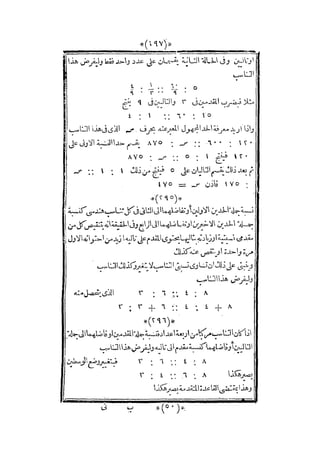 *(١٩٧)*
اوتاليين وفى الحالة الثانية يقسمان على عدد واحد فقط وليفرض هذا
التناسب
٥ : ٦/٩ :: ١/٣ : ٤/٩
مثلا فبضرب المقدمين فى ٣ والتاليين فى ٩ ينتج
١٥ : ٦٠ :: ١ : ٤
واذا اريد معرفة الحد المجهول المعبر عنه بحرف سہ الذى فى هذا التناسب
١٢٠ : ٦٠٠ :: سہ : ٨٧٥ يقسم حدا النسبة الاولى على
١٢٠ فينتج ١ : ٥ :: سہ : ٨٧٥
ثم بعد ذلك يقسم التاليان على ٥ فينتج من ذلك ١ : ١ :: سہ
: ١٧٥ فاذن سہ = ١٧٥
*(٢٩٥)*
نسبة جملة الحدين الاولين او تفاضلهما الى الثانى فى كل تناسب هندسى كنسبة
جملة الحدين الاخيرين او تفاضلهما الى الرابع وفى الحقيقة انه بتنقيص كل من
مقدمى نسبتيه او زيادته بتاليهما يحتوى المقدم على تاليه ازيد من احتوائه الاول
مرة واحدة او ينقص عنه كذلك
وينبنى على ذلك ان تساوى نسبتى التناسب لا يتغير وكذلك التناسب
وليفرض هذا التناسب
٨ : ٤ :: ٦ : ٣ الذى يتحصل منه
٨ + ٤ : ٤ :: ٦ + ٣ : ٣
*(٢٩٦)*
اذا كان التناسب مركبا من اربعة اعداد فنسبة جملة المقدمين او تفاضلهما الى جملة
التاليين أو تفاضلهما كنسبة مقدم الى تاليه وليفرض هذا التناسب
٨ : ٤ :: ٦ : ٣ فبتغيير وضع الوسطين
يصير هكذا ٨ : ٦ :: ٤ : ٣
وهذا بمقتضى القاعدة المتقدمة يصير هكذا
*(٥٠)* ب نى